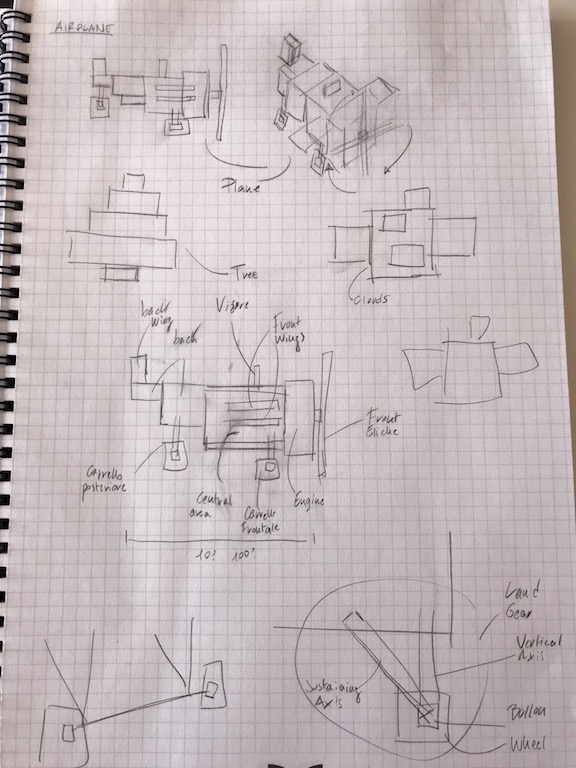 AIRPLANE
Plane
Tree
Clouds
back
wing
back
Visore
Front
Wing
Front
Eliche
Carrello
posteriore
Central
area
Carrello
Frontale
Engine
10? 100?
Land
Gear
Vertical
Axis
Sustaining
Axis
Wheel